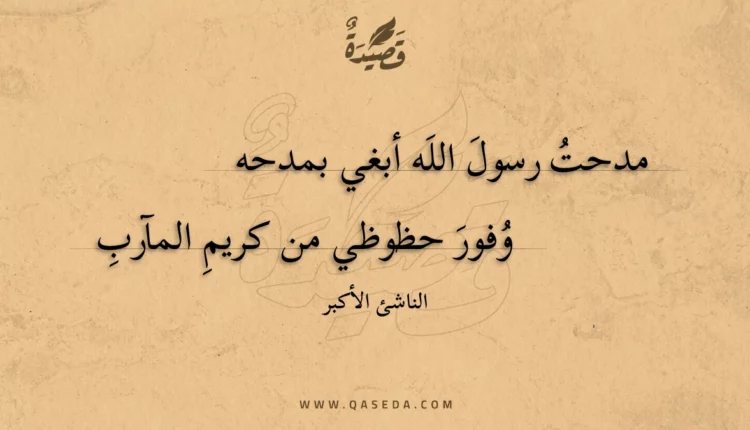 قَصِيْدَةٌ
مدحتُ رسولَ اللَه أبغي بمدحه
وُفورَ حظوظي من كريمِ المآربِ
الناشئ الأكبر
WWW.QASEDA.COM